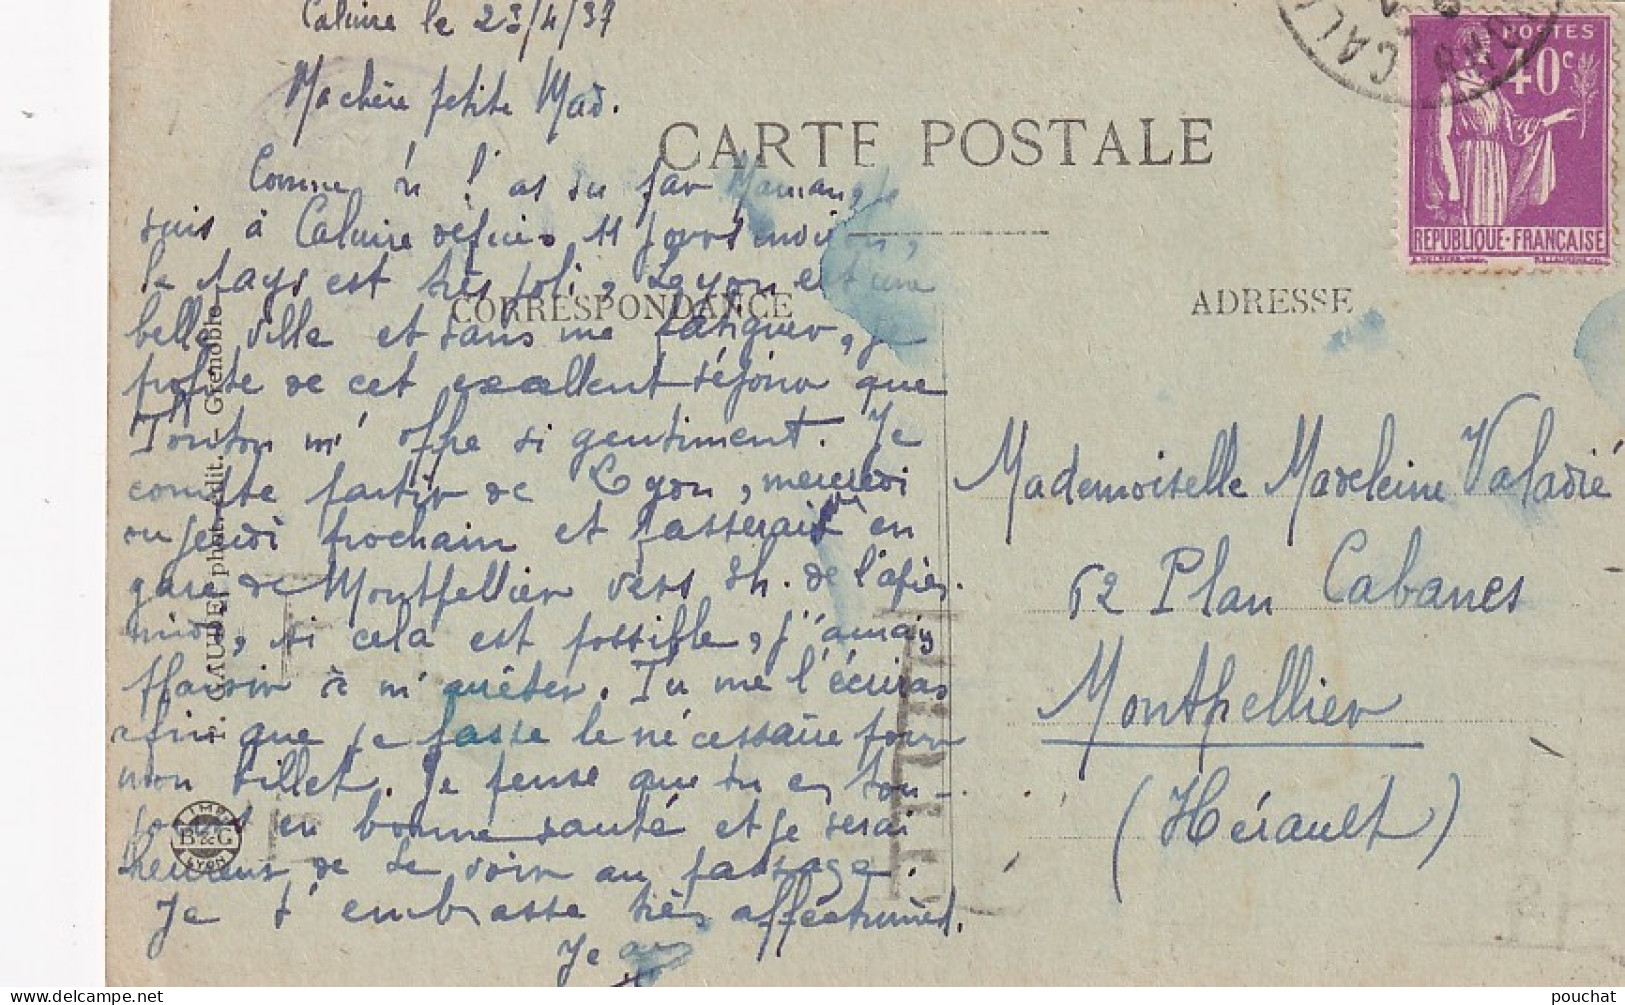 Caluire le 23/4/37
Ma chère petite Mad.
Comme tu l'as su par Maman, je
suis à Caluire depuis 11 jours environ,
le pays est très joli, Lyon est une
belle ville et sans me fatiguer, je
profite de cet excellent séjour que
Tonton m'offre si gentiment. Je
compte partir de Lyon, mercredi
ou jeudi prochain et passerais en
gare de Montpellier vers 3h. de l'après
midi, si cela est possible, j'aurais
plaisir à m'arrêter. Tu me l'écriras
afin que je fasse le nécessaire pour
mon billet. Je pense que tu es tou-
jours en bonne santé et je serai
heureux de te voir au passage.
Je t'embrasse très affectueust.
Jean
CARTE POSTALE
CORRESPONDANCE
ADRESSE
Mademoiselle Madeleine Valadié
62 Plan Cabanes
Montpellier
(Hérault)
POSTES
40c
REPUBLIQUE-FRANÇAISE
CAL
GAUDET phot.-édit. - Grenoble
IMP.
B&G
LYON
pouchat